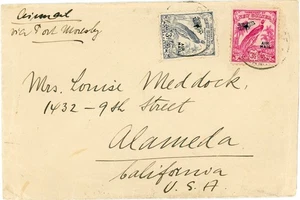 Airmail
via Port Moresby
Mrs. Louise Meddock.
1432-9th Street
Alameda
California
U.S.A